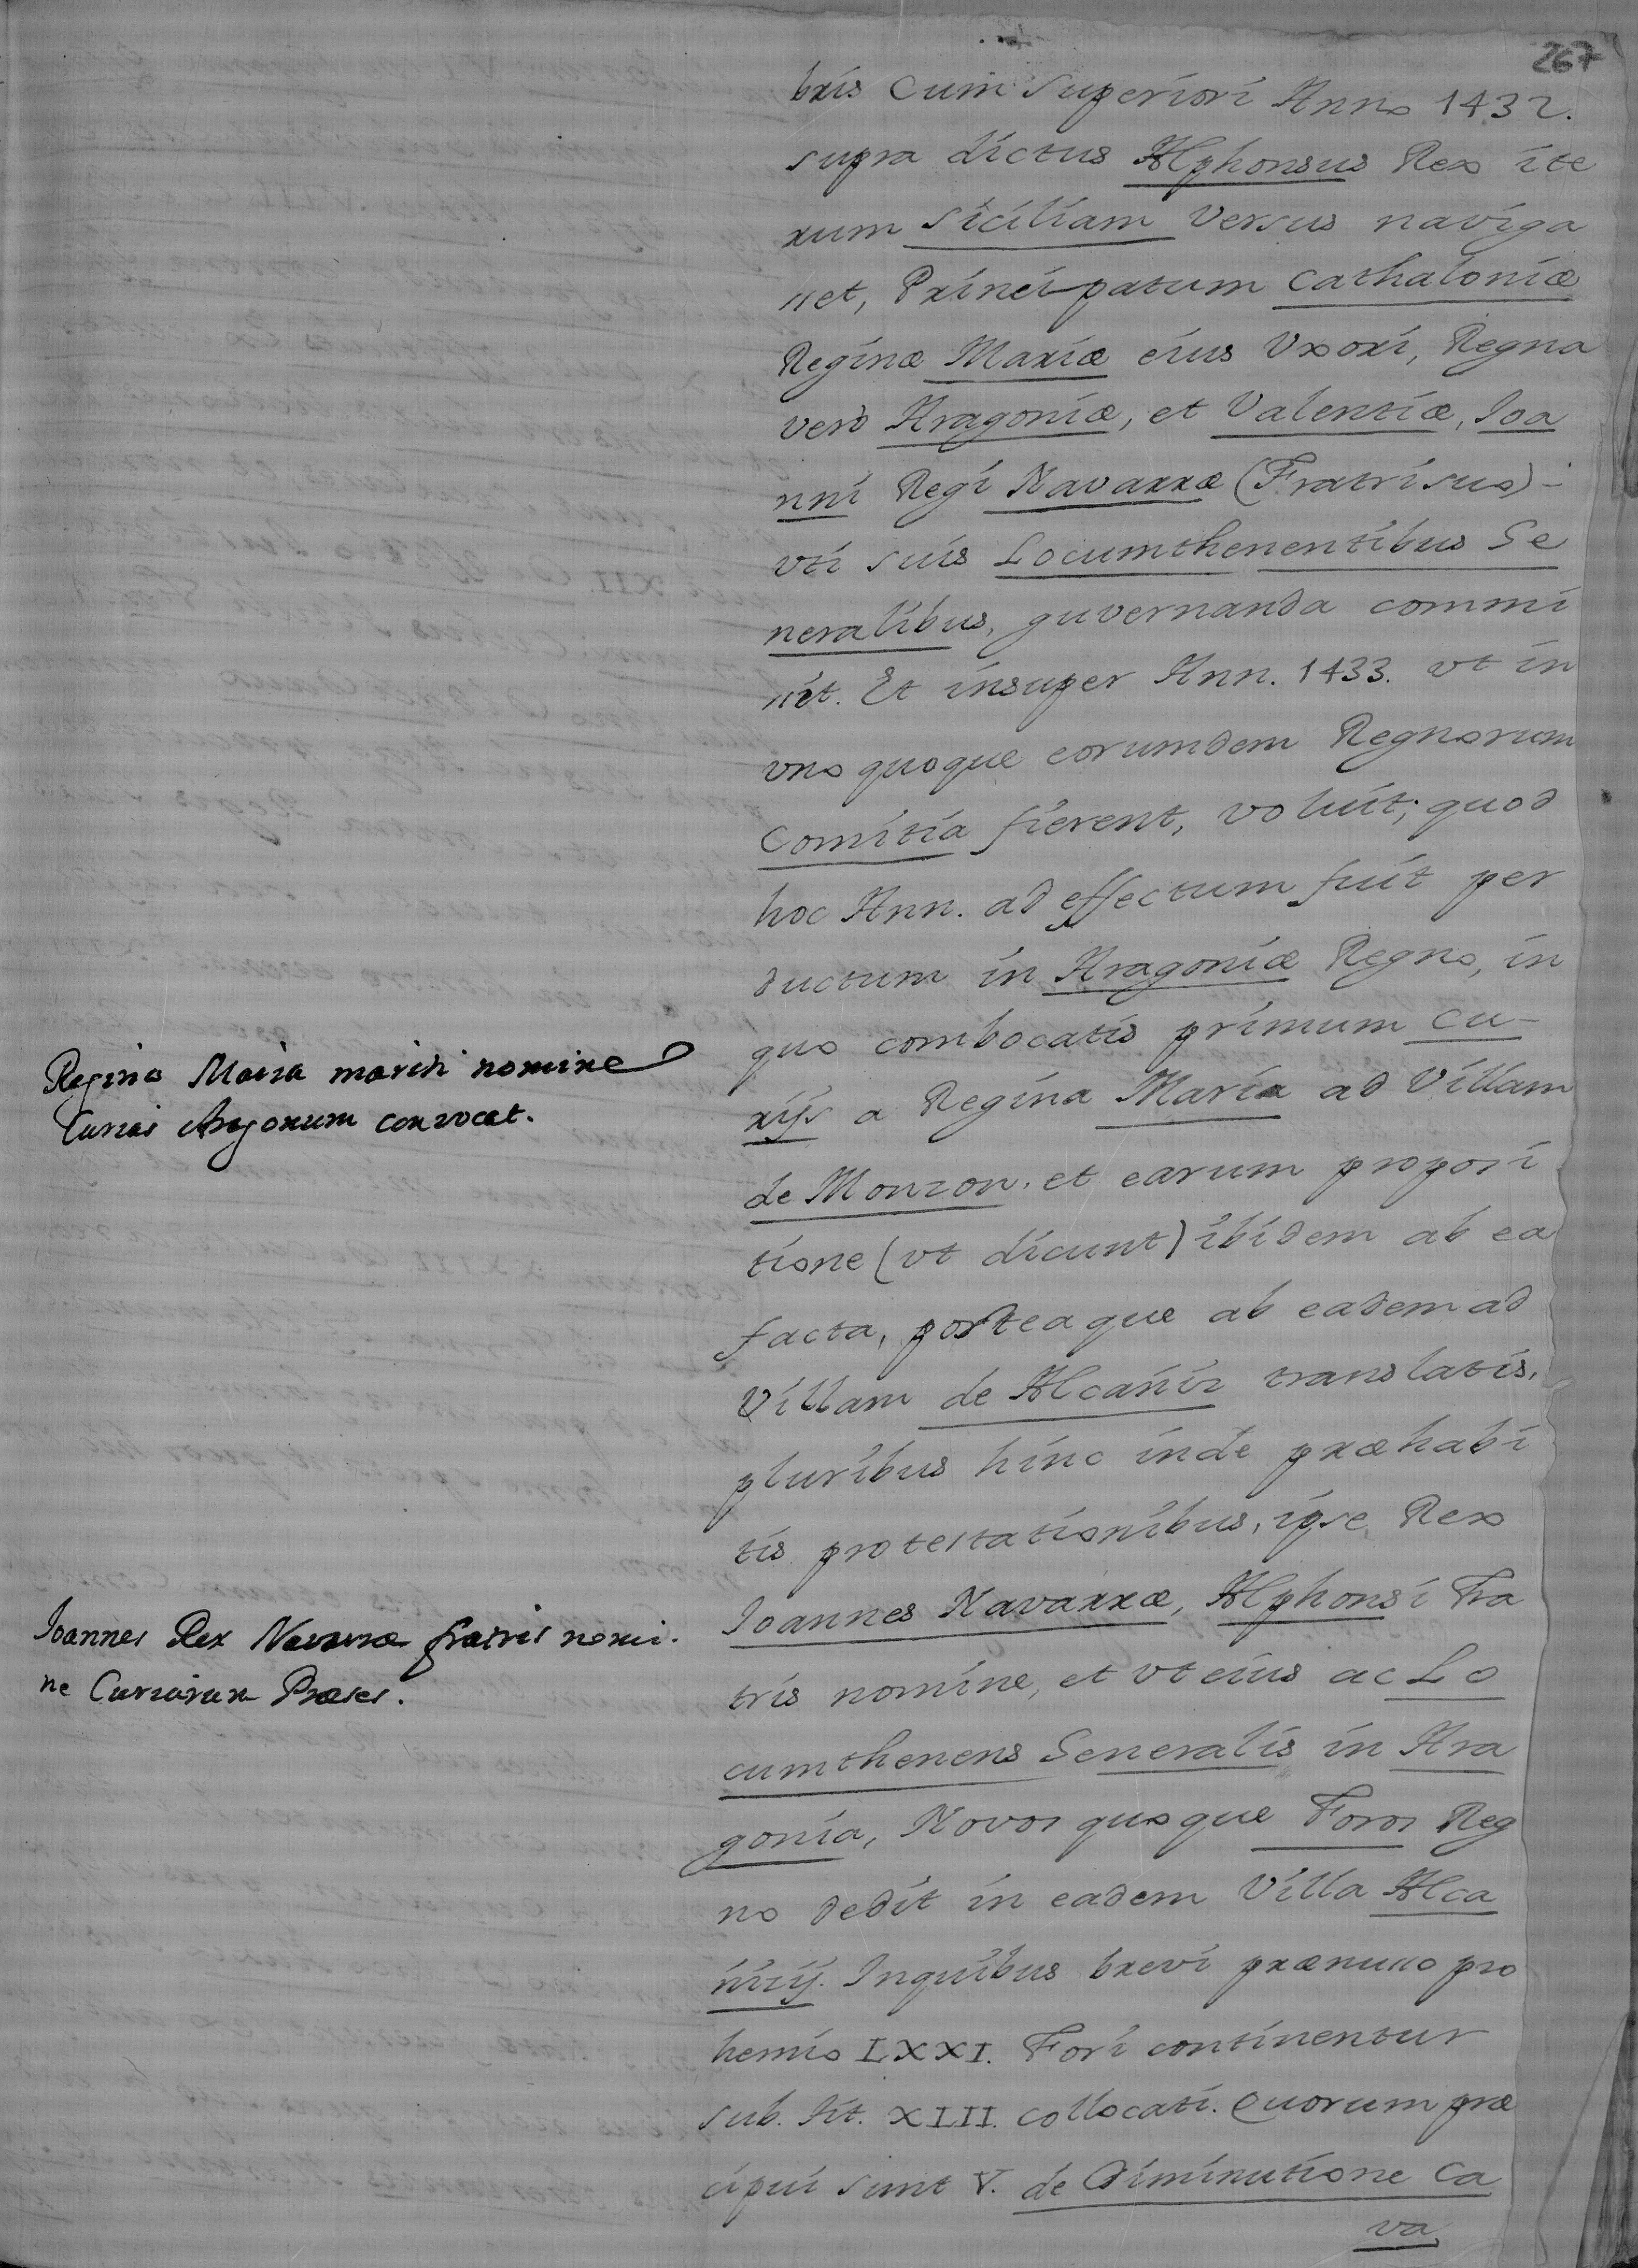 267
bris Cum Superiori Anno 1432.
supra dictus Alphonsus Rex ite
rum Siciliam Versus naviga
sset, Principatum Cathaloniæ
Reginæ Mariæ eius Vxori, Regna
verò Aragoniæ, et Valentiæ, Ioa
nni Regi Navarræ (Fratri suo) -
vti suis Locumthenentibus Ge
neralibus, guvernanda commi
ssit. Et insuper Ann. 1433. vt in
vno quoque eorumdem Regnorum
Comitia fierent, voluit; quod
hoc Ann. ad effectum fuit per
ductum in Aragoniæ Regno, in
quo combocatis primum Cu-
rijs a Regina Maria ad Villam
de Monzon, et earum proposi
tione (vt dicunt) ibidem ab ea
facta, posteaque ab eadem ad
Villam de Alcañiz translatis,
pluribus hinc inde præhabi
tis protestationibus, ipse Rex
Ioannes Navarræ, Alphonsi Fra
tris nomine, et vt eius ac Lo
cumthenens Generalis in Ara
gonia, Novos quoque Foros Reg
no dedit in eadem Villa Alca
ñizij. Inquibus brevi præmisso pro
hemio LXXI. Fori continentur
sub. tit. XLII. collocati. Quorum præ
cipui sunt V. de Diminutione Ca
va,
Regina Maria mariti nomine
Curias Aragonum convocat.
Ioannes Rex Navarræ fratris nomi.
ne Curiarum Præses.